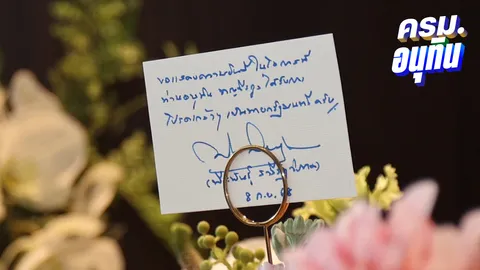 ครม.
อนุทิน
ขอแสดงความยินดีในโอกาสที่
ท่านอนุทิน ชาญวีรกูล ได้รับการ
โปรดเกล้าฯ เป็นนายกรัฐมนตรีครับ
8 ก.ย. 68